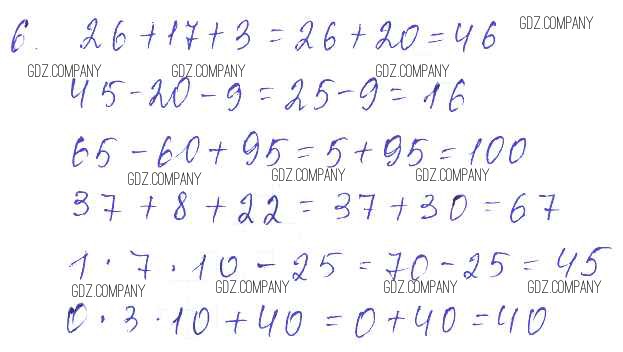 GDZ.COMPANY
6. 26+17+3=26+20=46
GDZ.COMPANY GDZ.COMPANY GDZ.COMPANY
45-20-9=25-9=16
65-60+95=5+95=100
GDZ.COMPANY GDZ.COMPANY GDZ.COMPANY
37+8+22=37+30=67
1·7·10-25=70-25=45
GDZ.COMPANY GDZ.COMPANY GDZ.COMPANY GDZ.COMPANY
0·3·10+40=0+40=40